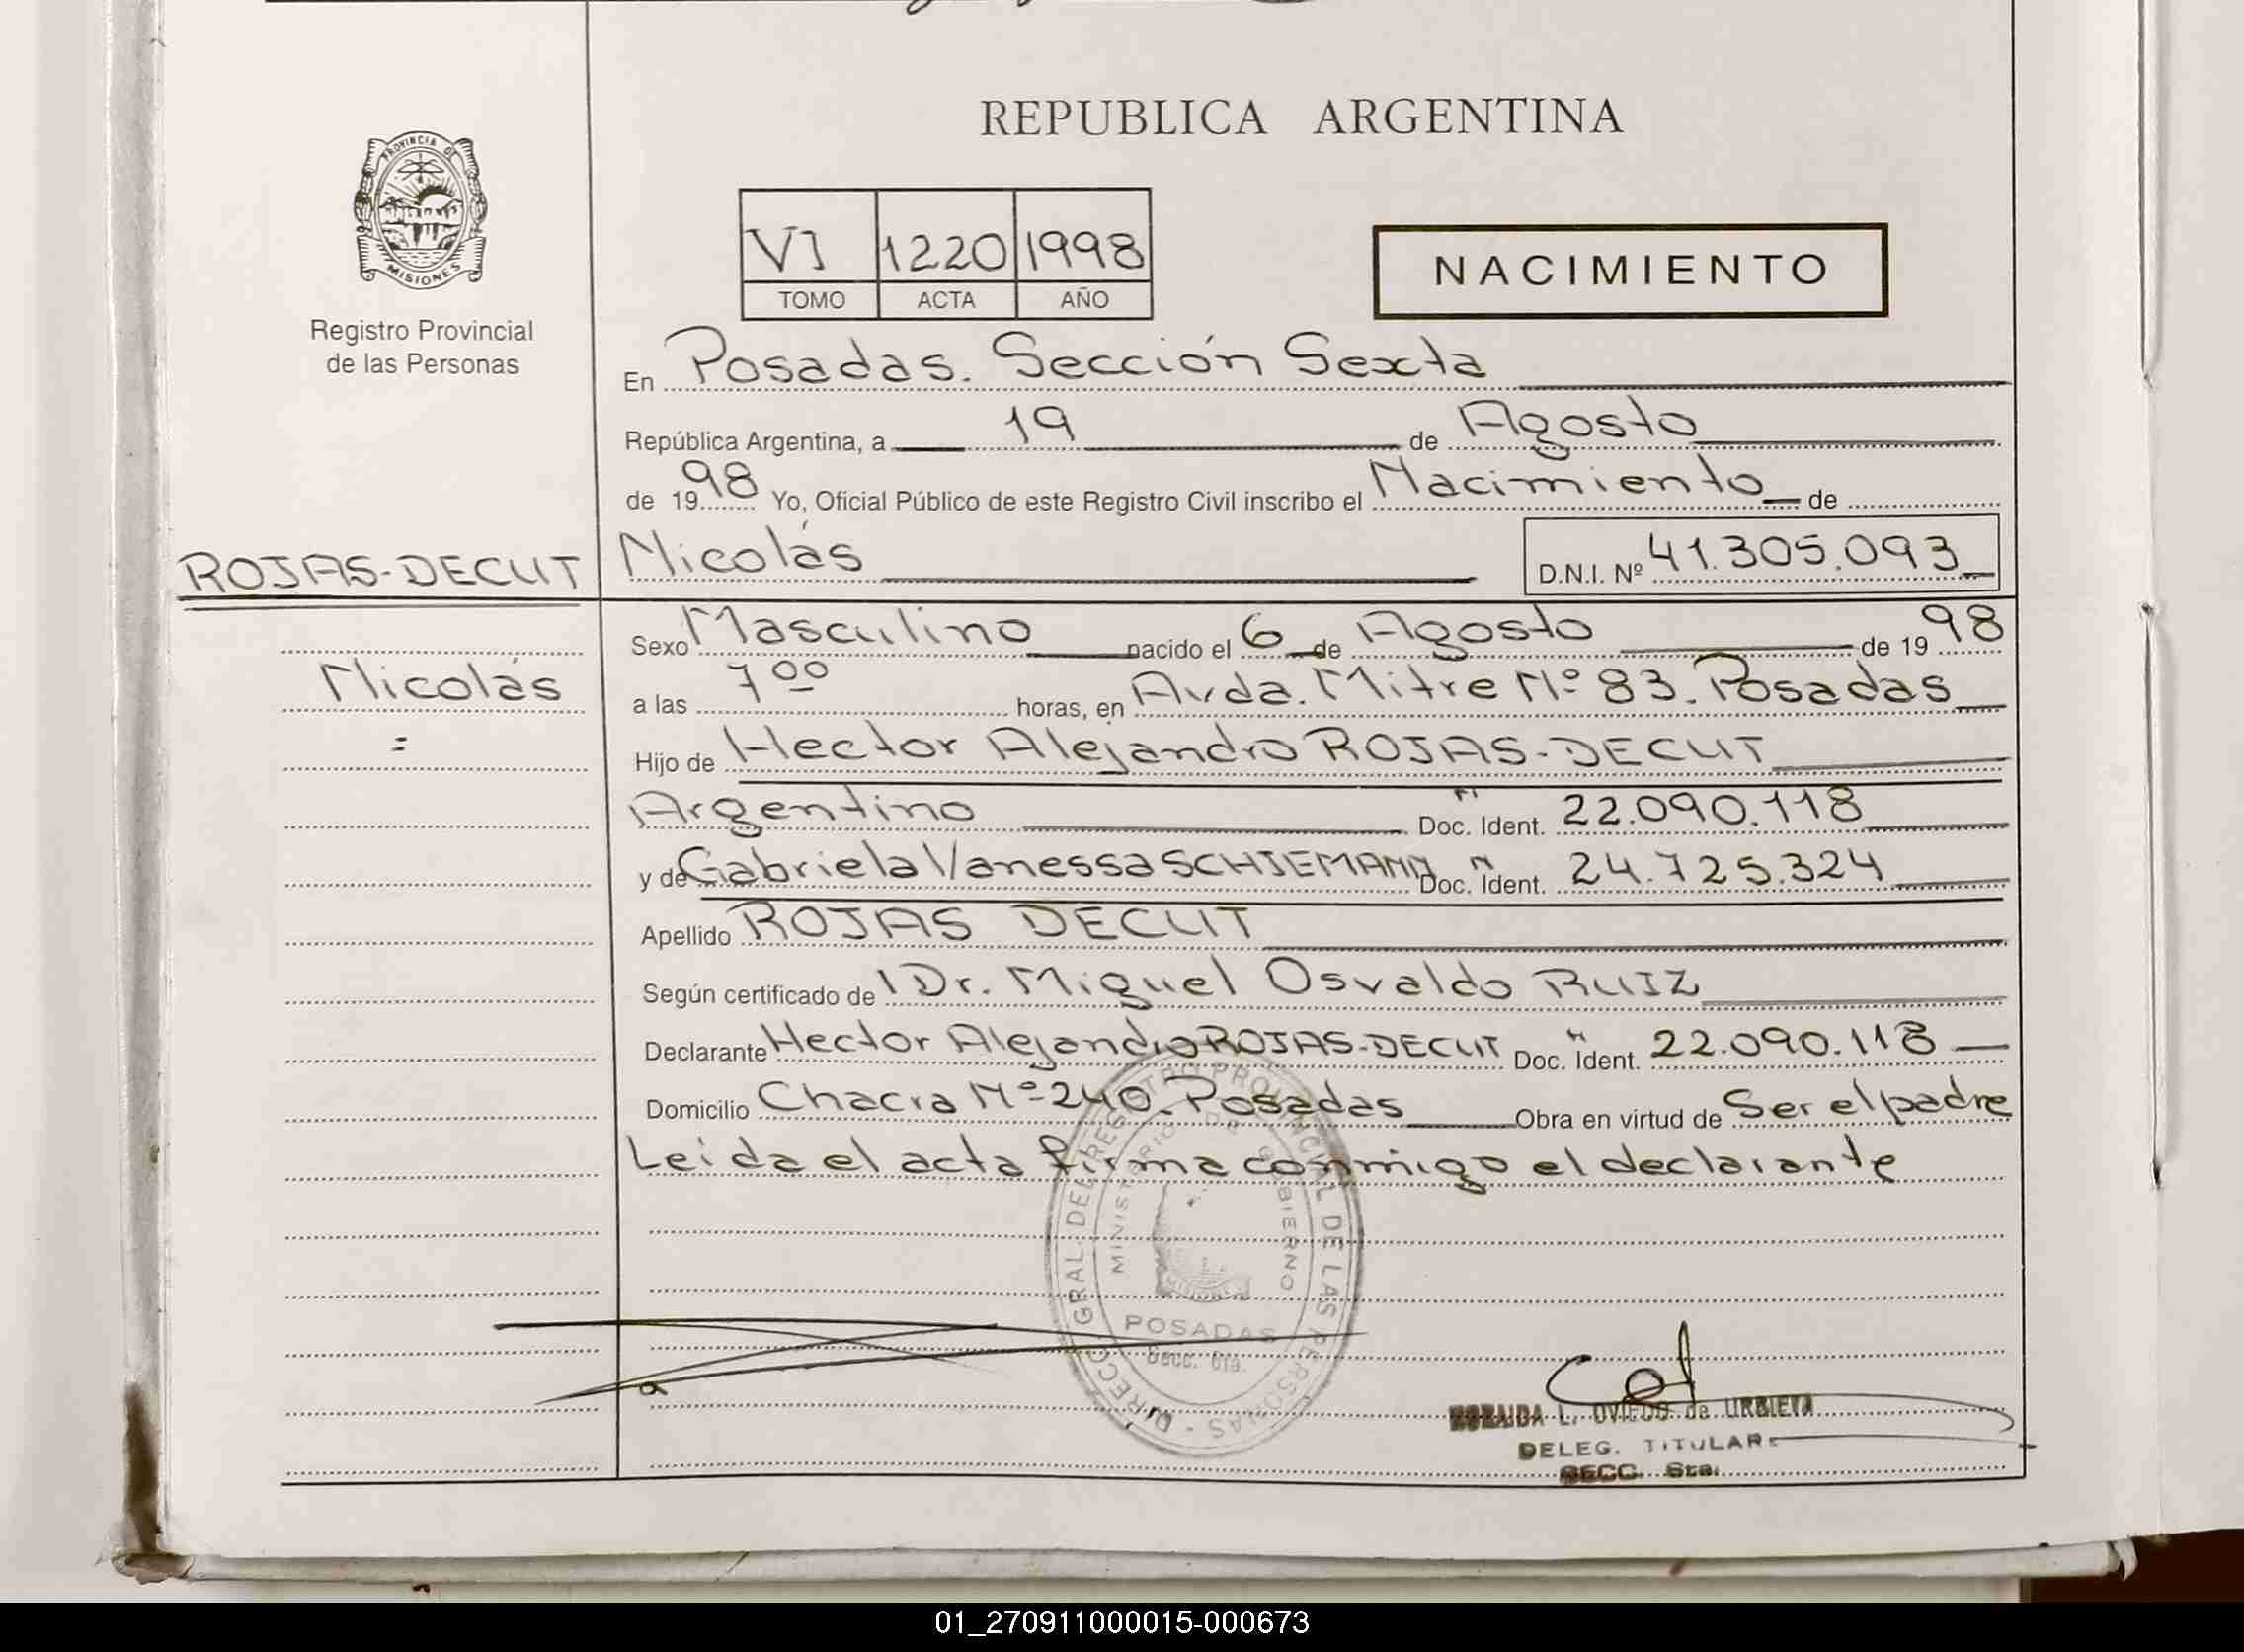 REPUBLICA ARGENTINA
PROVINCIA DE
MISIONES
Registro Provincial
de las Personas
VI 1220 1998
TOMO ACTA AÑO
NACIMIENTO
En Posadas. Sección Sexta
República Argentina, a 19 de Agosto
de 1998 Yo, Oficial Público de este Registro Civil inscribo el Nacimiento de
ROJAS-DECUT Nicolás D.N.I. Nº 41.305.093
Sexo Masculino nacido el 6 de Agosto de 1998
Nicolás
a las 7 00 horas, en Avda. Mitre Nº 83. Posadas
Hijo de Hector Alejandro ROJAS-DECUT
Argentino Doc. Ident. 22.090.118
y de Gabriela Vanessa SCHIEMANN Doc. Ident. 24.725.324
Apellido ROJAS DECUT
Según certificado de Dr. Miguel Osvaldo RUIZ
Declarante Hector Alejandro ROJAS-DECUT Doc. Ident. 22.090.118
Domicilio Chacra Nº 240. Posadas Obra en virtud de Ser el padre
Leída el acta firma conmigo el declarante
DIRECC. GRAL. DEL REGISTRO PROVINCIAL DE LAS PERSONAS
MINISTERIO DE GOBIERNO
POSADAS
Secc. 6ta.
L. OVIEDO de URBIETA
DELEG. TITULAR
SECC. 6ta.
01_270911000015-000673